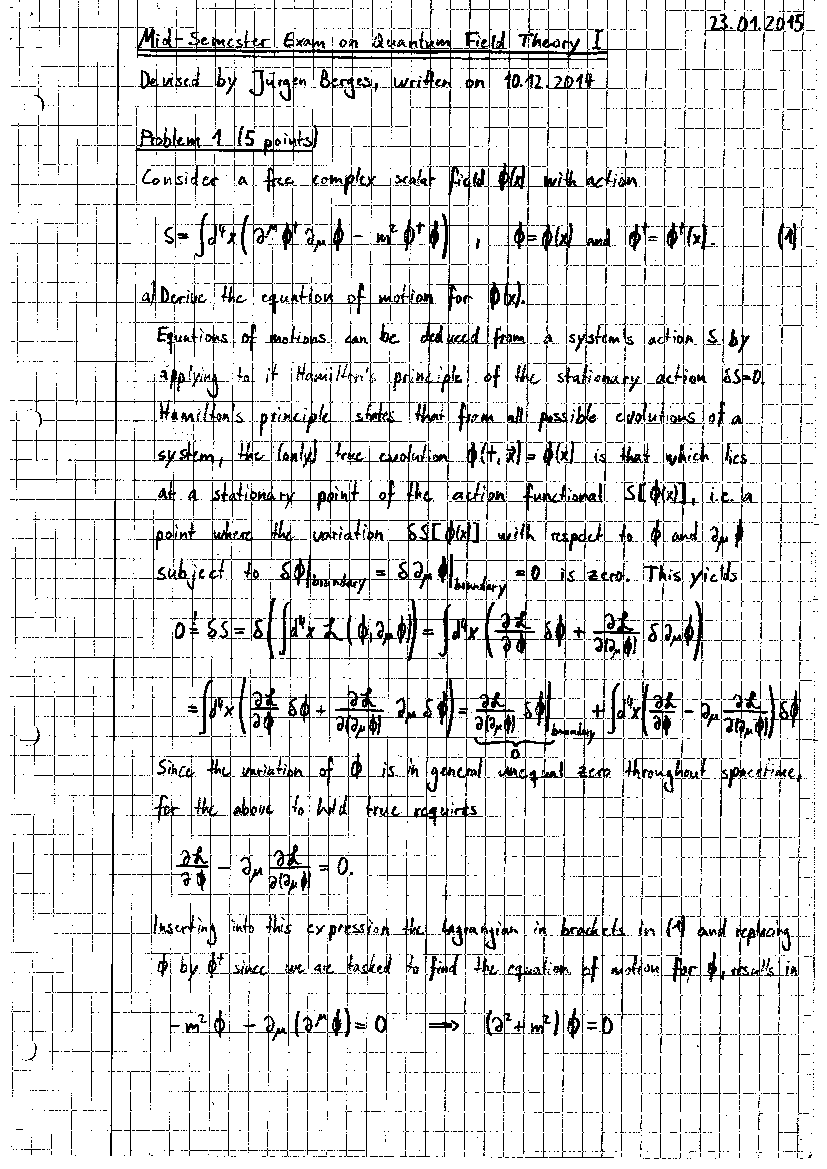 23.01.2015
Mid-Semester Exam on Quantum Field Theory I
Devised by Jürgen Berges, written on 10.12.2014
Problem 1 (5 points)
Consider a free complex scalar field ϕ(x) with action
S = ∫d⁴x (∂^μ ϕ† ∂_μ ϕ − m² ϕ† ϕ) , ϕ = ϕ(x) and ϕ† = ϕ†(x). (1)
a) Derive the equation of motion for ϕ(x).
Equations of motions can be deduced from a system's action S by
applying to it Hamilton's principle of the stationary action δS=0.
Hamilton's principle states that from all possible evolutions of a
system, the (only) true evolution ϕ(t, x⃗) = ϕ(x) is that which lies
at a stationary point of the action functional S[ϕ(x)], i.e. a
point where the variation δS[ϕ(x)] with respect to ϕ and ∂_μ ϕ
subject to δϕ|_boundary = δ∂_μ ϕ|_boundary = 0 is zero. This yields
0 =! δS = δ(∫d⁴x ℒ(ϕ, ∂_μ ϕ)) = ∫d⁴x (∂ℒ/∂ϕ δϕ + ∂ℒ/∂(∂_μ ϕ) δ∂_μ ϕ)
= ∫d⁴x (∂ℒ/∂ϕ δϕ + ∂ℒ/∂(∂_μ ϕ) ∂_μ δϕ) = ∂ℒ/∂(∂_μ ϕ) δϕ|_boundary + ∫d⁴x (∂ℒ/∂ϕ − ∂_μ ∂ℒ/∂(∂_μ ϕ)) δϕ
0
Since the variation of ϕ is in general unequal zero throughout spacetime,
for the above to hold true requires
∂ℒ/∂ϕ − ∂_μ ∂ℒ/∂(∂_μ ϕ) = 0.
Inserting into this expression the Lagrangian in brackets in (1) and replacing
ϕ by ϕ† since we are tasked to find the equation of motion for ϕ, results in
−m² ϕ − ∂_μ (∂^μ ϕ) = 0 ⟹ (∂² + m²) ϕ = 0